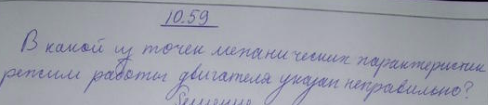 10.59
В какой из точек механических характеристик
режим работы двигателя указан неправильно?
Решение